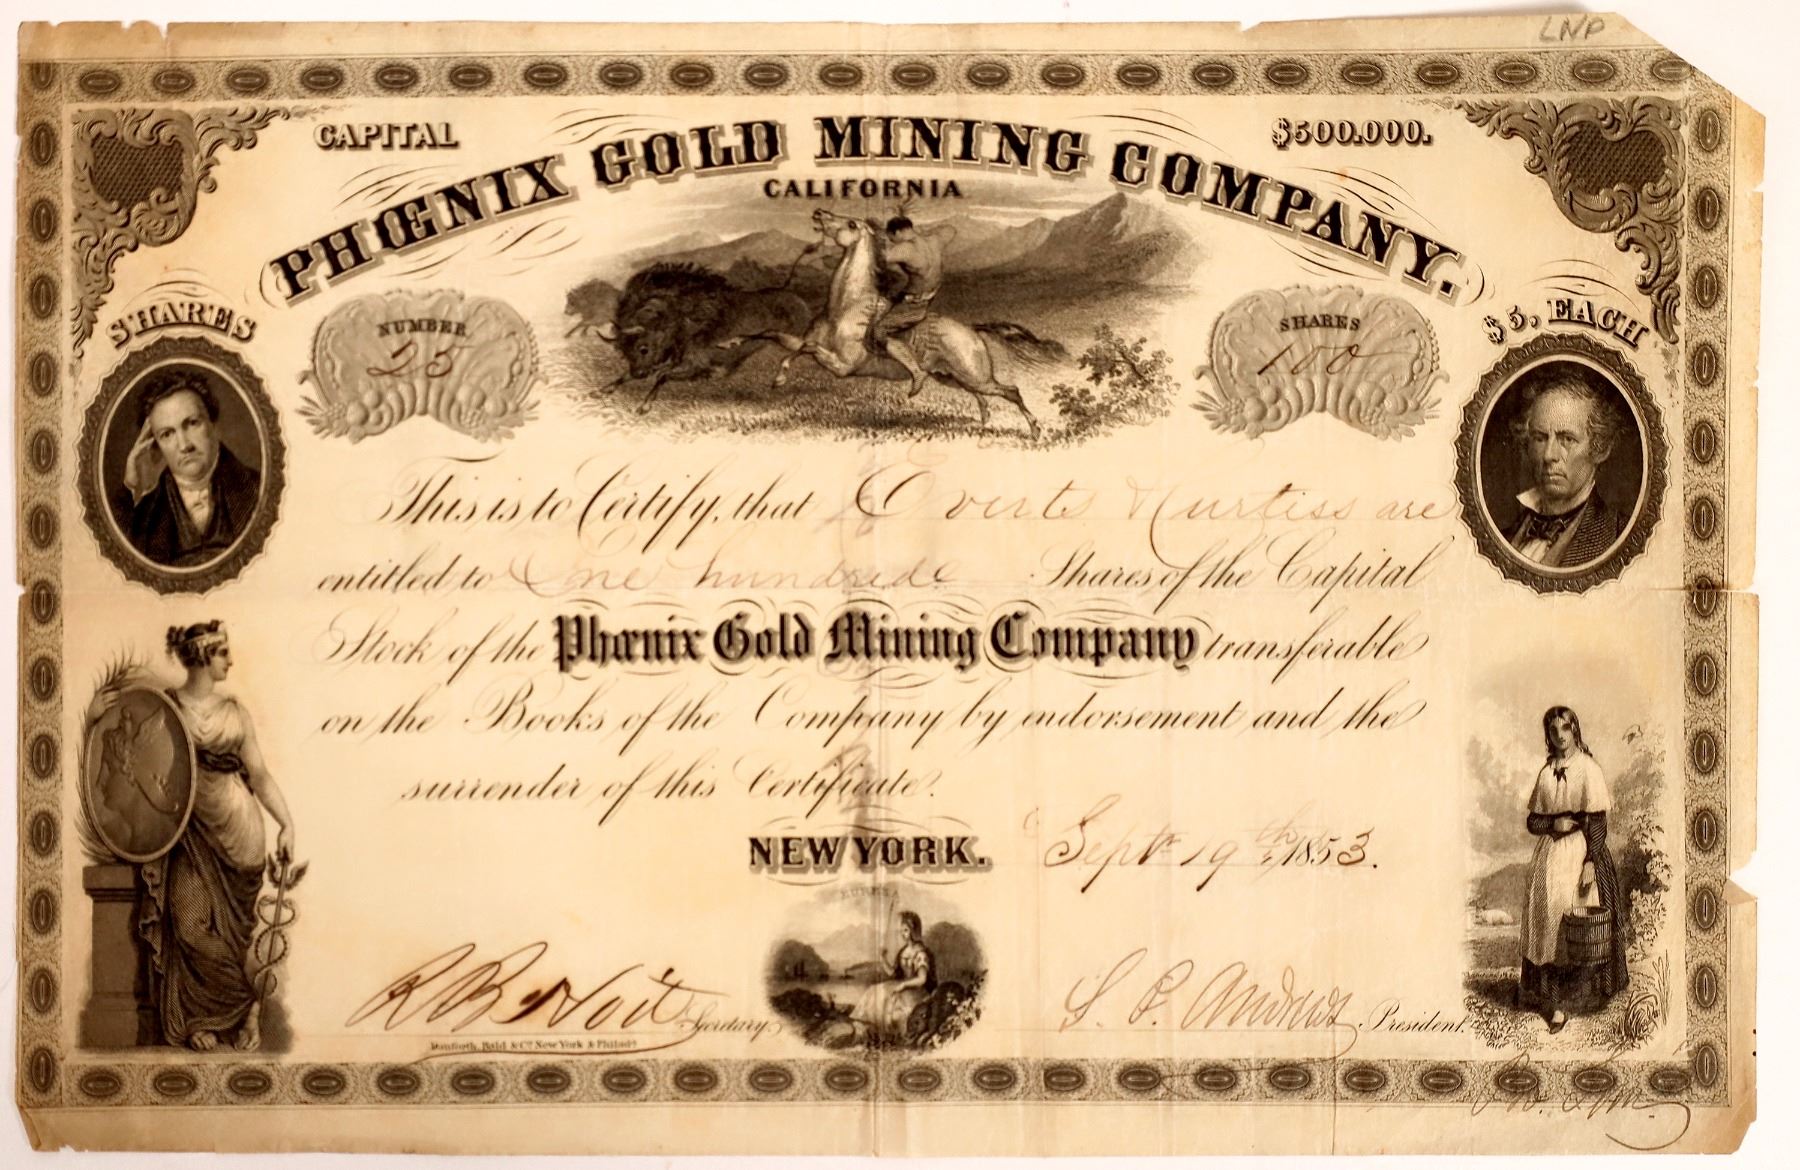 LNP
CAPITAL
$500.000.
PHŒNIX GOLD MINING COMPANY.
CALIFORNIA
SHARES
$5, EACH
NUMBER
25
SHARES
100
This is to Certify, that Everts & Curtiss are
entitled to One hundrede Shares of the Capital
Stock of the Phœnix Gold Mining Company transferable
on the Books of the Company by endorsement and the
surrender of this Certificate.
NEW YORK. Sept 19th, 1853.
EUREKA
R B Hoit Secretary,
S. P. Andrews, President.
Danforth, Bald & Co. New York & Philada.